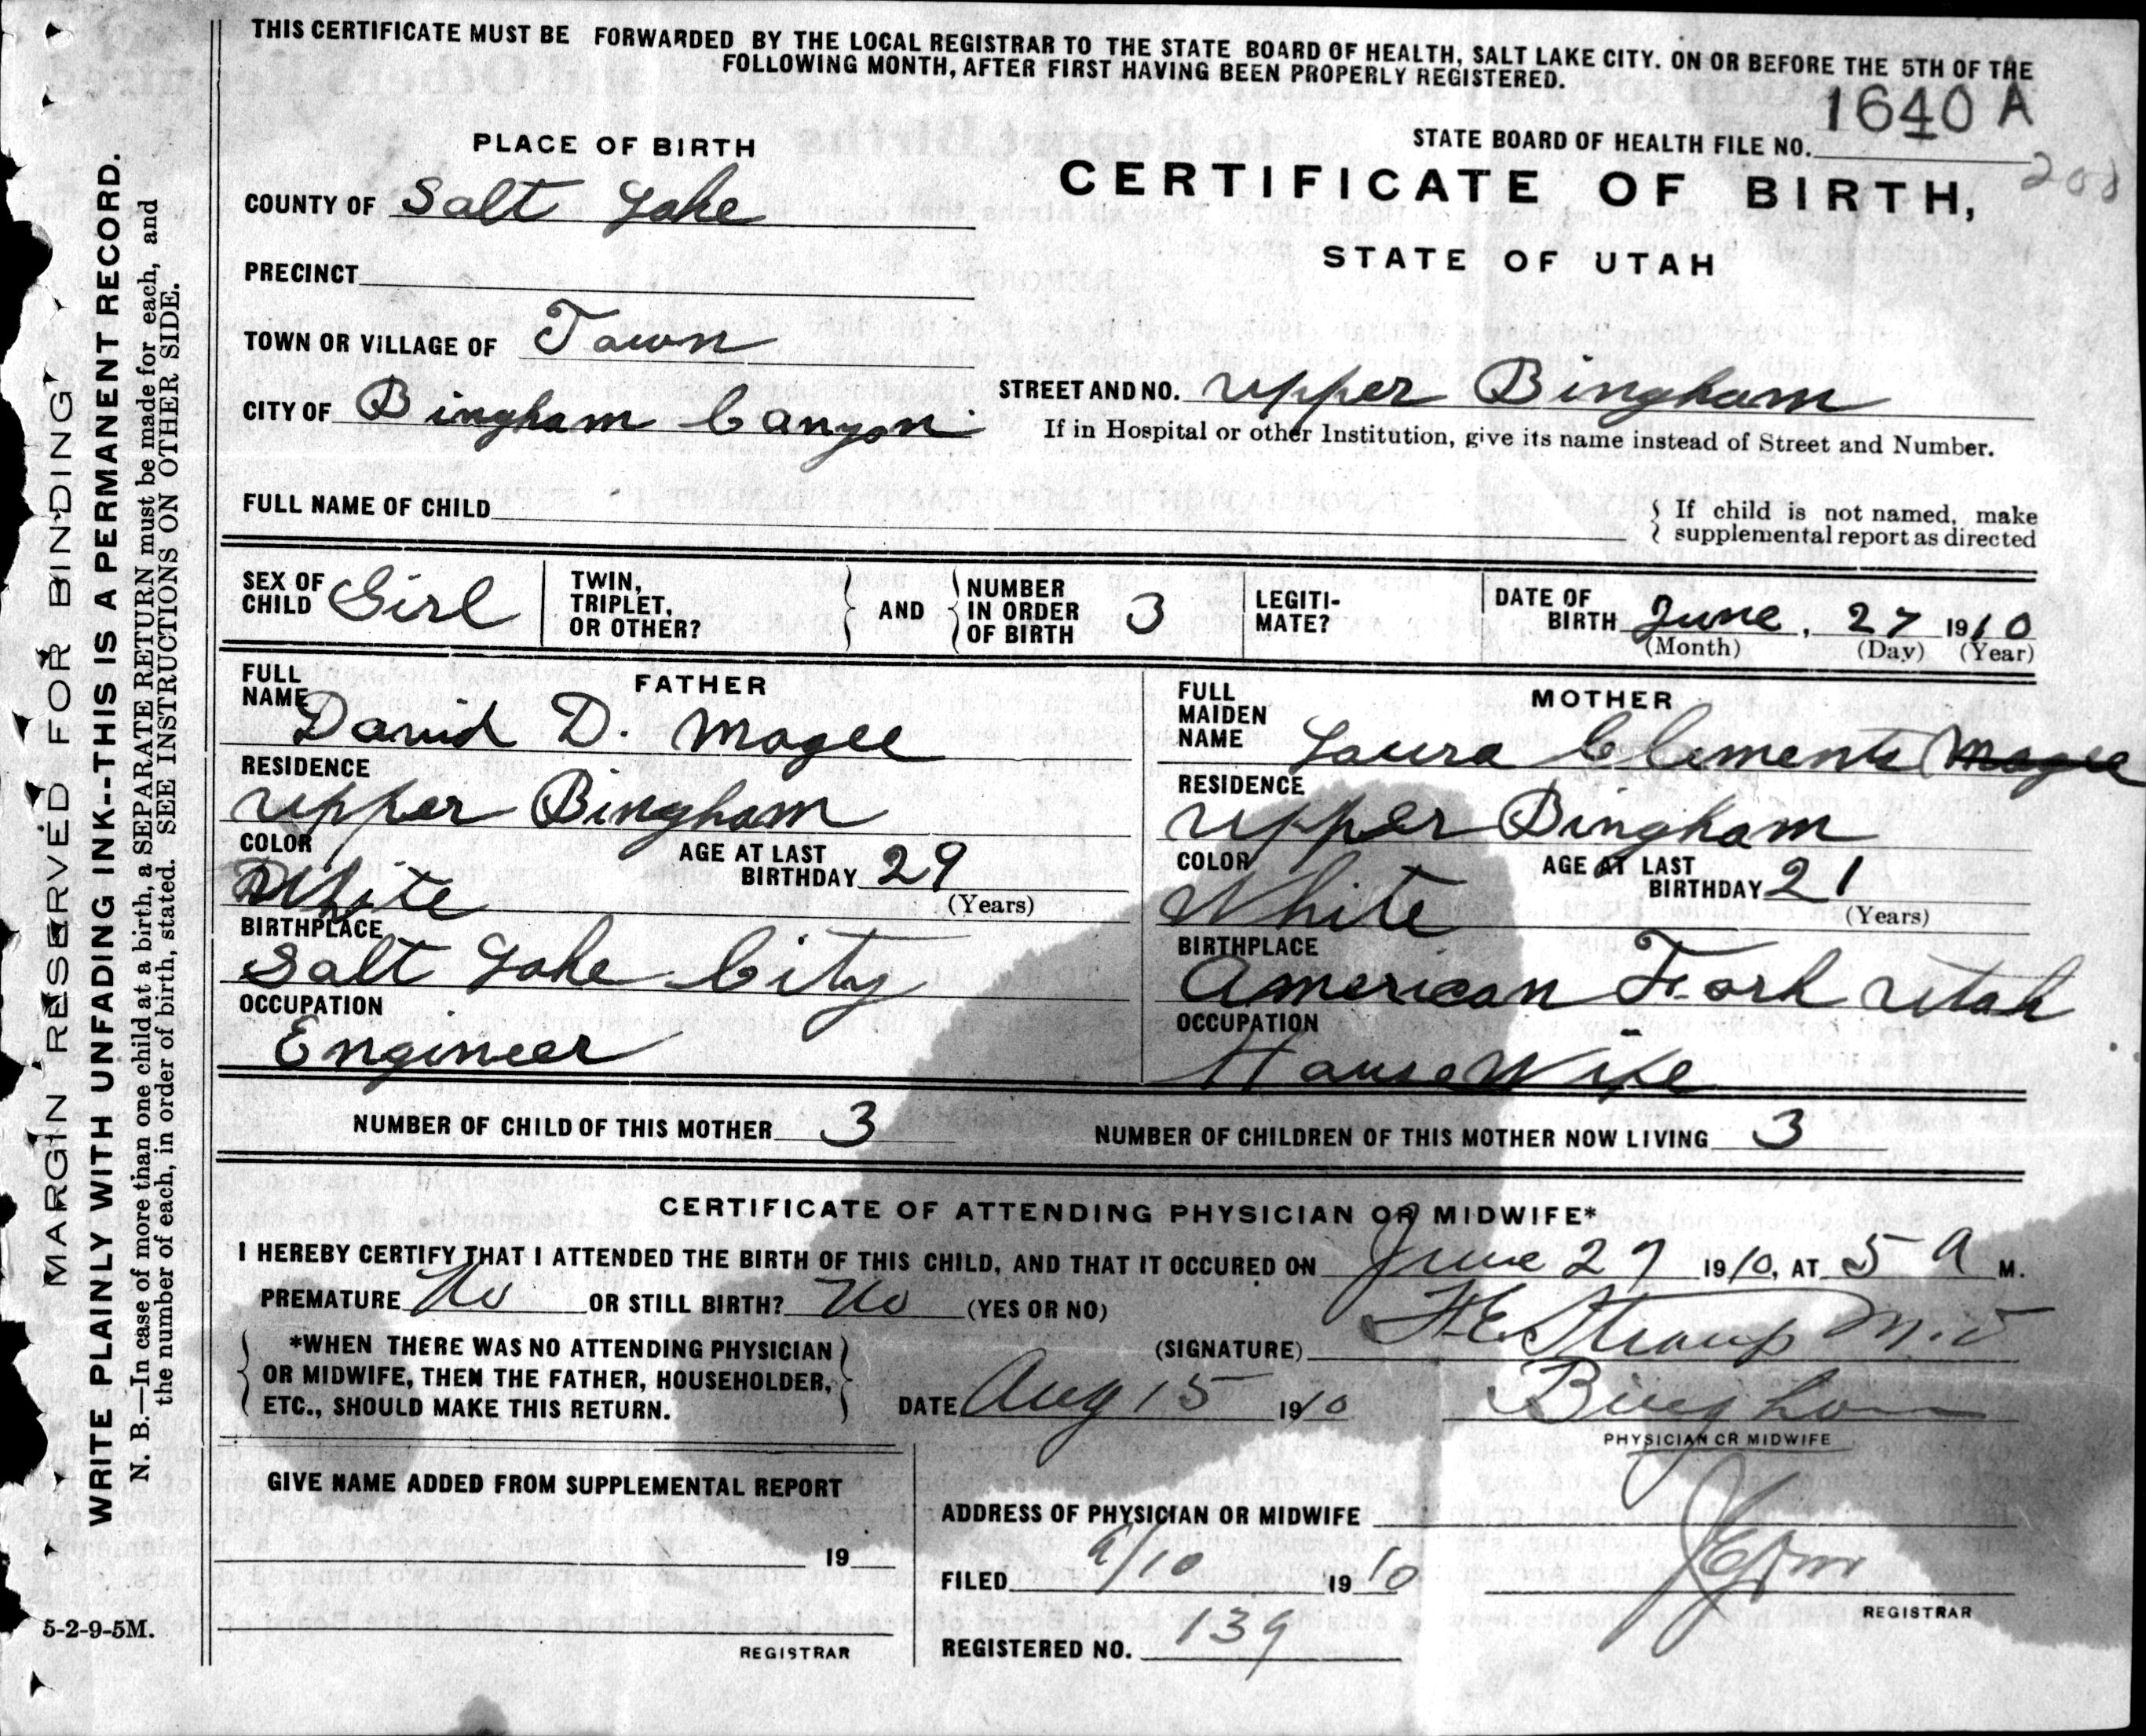 THIS CERTIFICATE MUST BE FORWARDED BY THE LOCAL REGISTRAR TO THE STATE BOARD OF HEALTH, SALT LAKE CITY. ON OR BEFORE THE 5TH OF THE
FOLLOWING MONTH, AFTER FIRST HAVING BEEN PROPERLY REGISTERED.
1640 A
STATE BOARD OF HEALTH FILE NO.
200
CERTIFICATE OF BIRTH,
STATE OF UTAH
PLACE OF BIRTH
COUNTY OF Salt Lake
PRECINCT
TOWN OR VILLAGE OF Town
CITY OF Bingham Canyon
STREET AND NO. Upper Bingham
If in Hospital or other Institution, give its name instead of Street and Number.
FULL NAME OF CHILD
If child is not named, make
supplemental report as directed
SEX OF CHILD Girl
TWIN, TRIPLET, OR OTHER?
AND
NUMBER IN ORDER OF BIRTH 3
LEGITI-MATE?
DATE OF BIRTH June, 27 1910
(Month) (Day) (Year)
FATHER
FULL NAME David D. Magee
RESIDENCE
Upper Bingham
COLOR
White
AGE AT LAST BIRTHDAY 29
(Years)
BIRTHPLACE
Salt Lake City
OCCUPATION
Engineer
MOTHER
FULL MAIDEN NAME Laura Clements Magee
RESIDENCE
Upper Bingham
COLOR
White
AGE AT LAST BIRTHDAY 21
(Years)
BIRTHPLACE
American Fork Utah
OCCUPATION
House Wife
NUMBER OF CHILD OF THIS MOTHER 3
NUMBER OF CHILDREN OF THIS MOTHER NOW LIVING 3
CERTIFICATE OF ATTENDING PHYSICIAN OR MIDWIFE*
I HEREBY CERTIFY THAT I ATTENDED THE BIRTH OF THIS CHILD, AND THAT IT OCCURED ON June 27 1910, AT 5 A M.
PREMATURE No OR STILL BIRTH? No (YES OR NO)
*WHEN THERE WAS NO ATTENDING PHYSICIAN
OR MIDWIFE, THEN THE FATHER, HOUSEHOLDER,
ETC., SHOULD MAKE THIS RETURN.
(SIGNATURE) F.E. Straup M.D
DATE Aug 15 1910
Bingham
PHYSICIAN OR MIDWIFE
GIVE NAME ADDED FROM SUPPLEMENTAL REPORT
19
REGISTRAR
ADDRESS OF PHYSICIAN OR MIDWIFE
FILED 9/10 1910
REGISTRAR
REGISTERED NO. 139
MARGIN RESERVED FOR BINDING
WRITE PLAINLY WITH UNFADING INK--THIS IS A PERMANENT RECORD.
N. B.—In case of more than one child at a birth, a SEPARATE RETURN must be made for each, and
the number of each, in order of birth, stated. SEE INSTRUCTIONS ON OTHER SIDE.
5-2-9-5M.